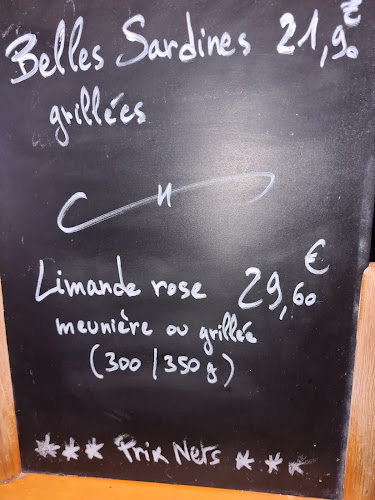 Belles Sardines 21,90 €
grillées
Limande rose 29,60 €
meunière ou grillée
(300 / 350 g)
*** Prix Nets ***